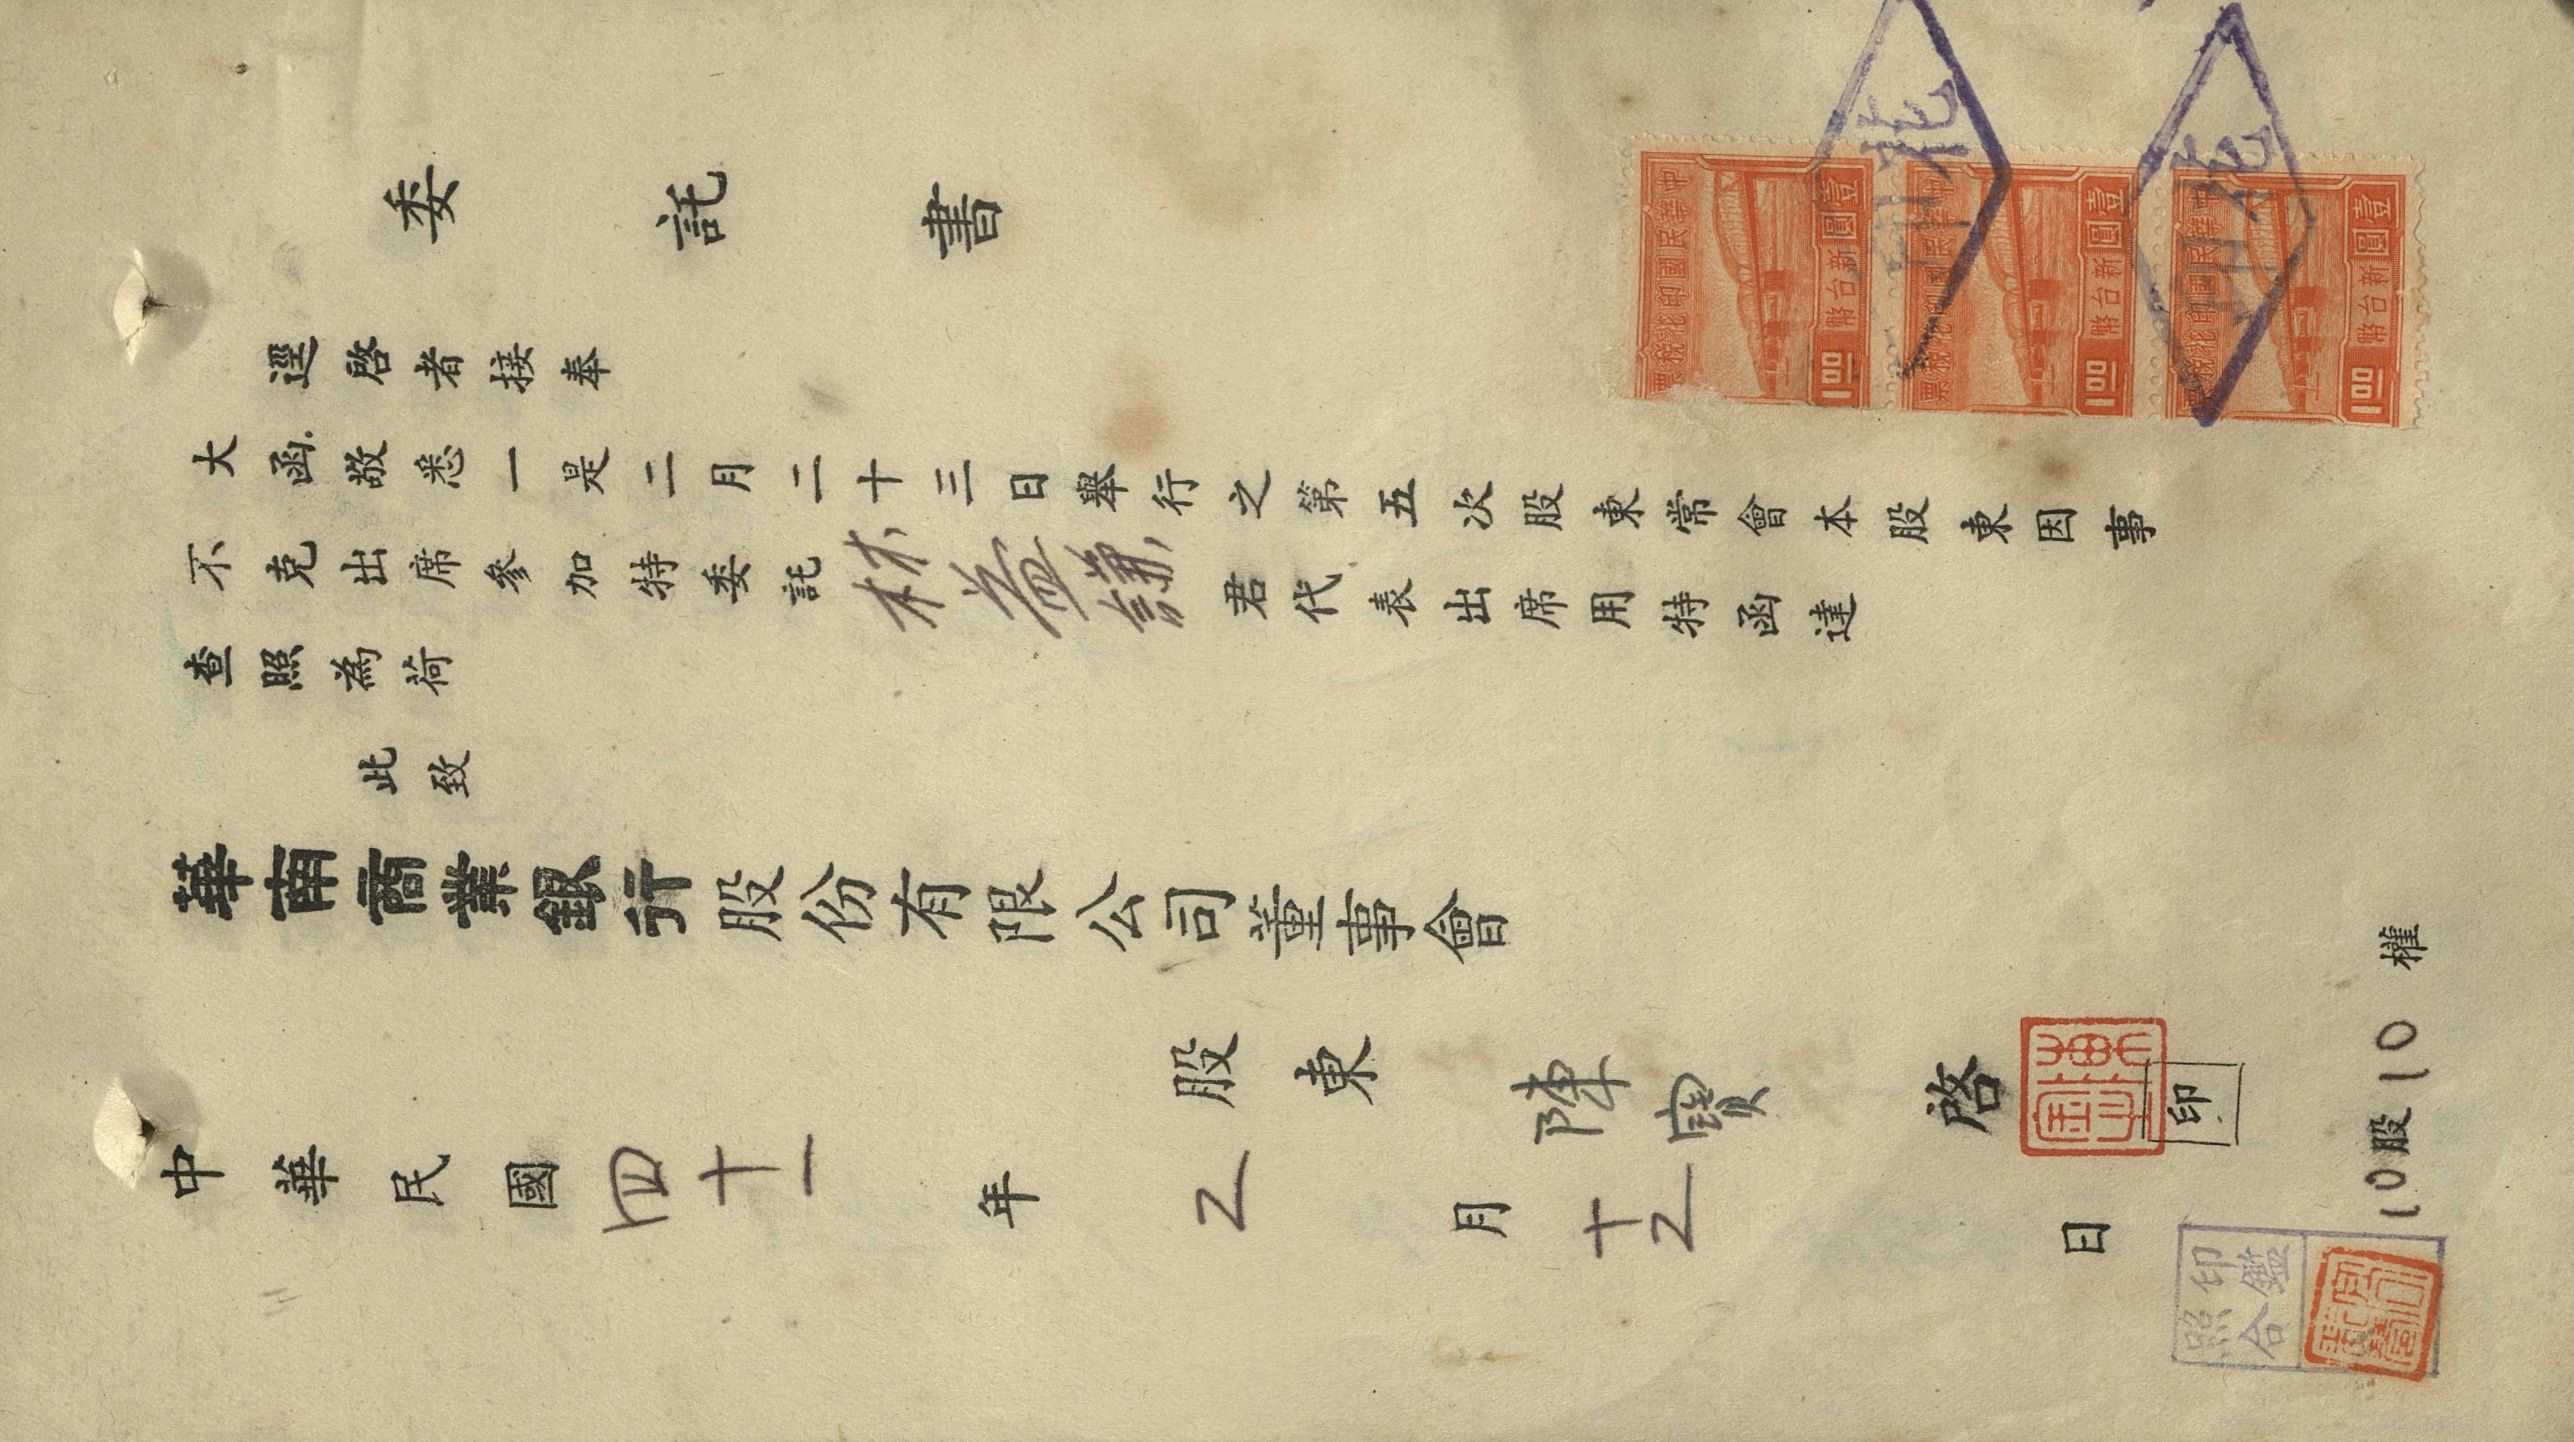 委託書
逕啓者接奉
大函敬悉一是二月二十三日舉行之第五次股東常會本股東因事
不克出席參加特委託林益謙君代表出席用特函達
查照為荷
此致
華南商業銀行股份有限公司董事會
股東 陳寶 啓 印
中華民國四十一年2月十2日
10股10權
印鑑
照合
中華民國印花稅票
壹圓新台幣
1.00
中華民國印花稅票
壹圓新台幣
1.00
中華民國印花稅票
壹圓新台幣
1.00